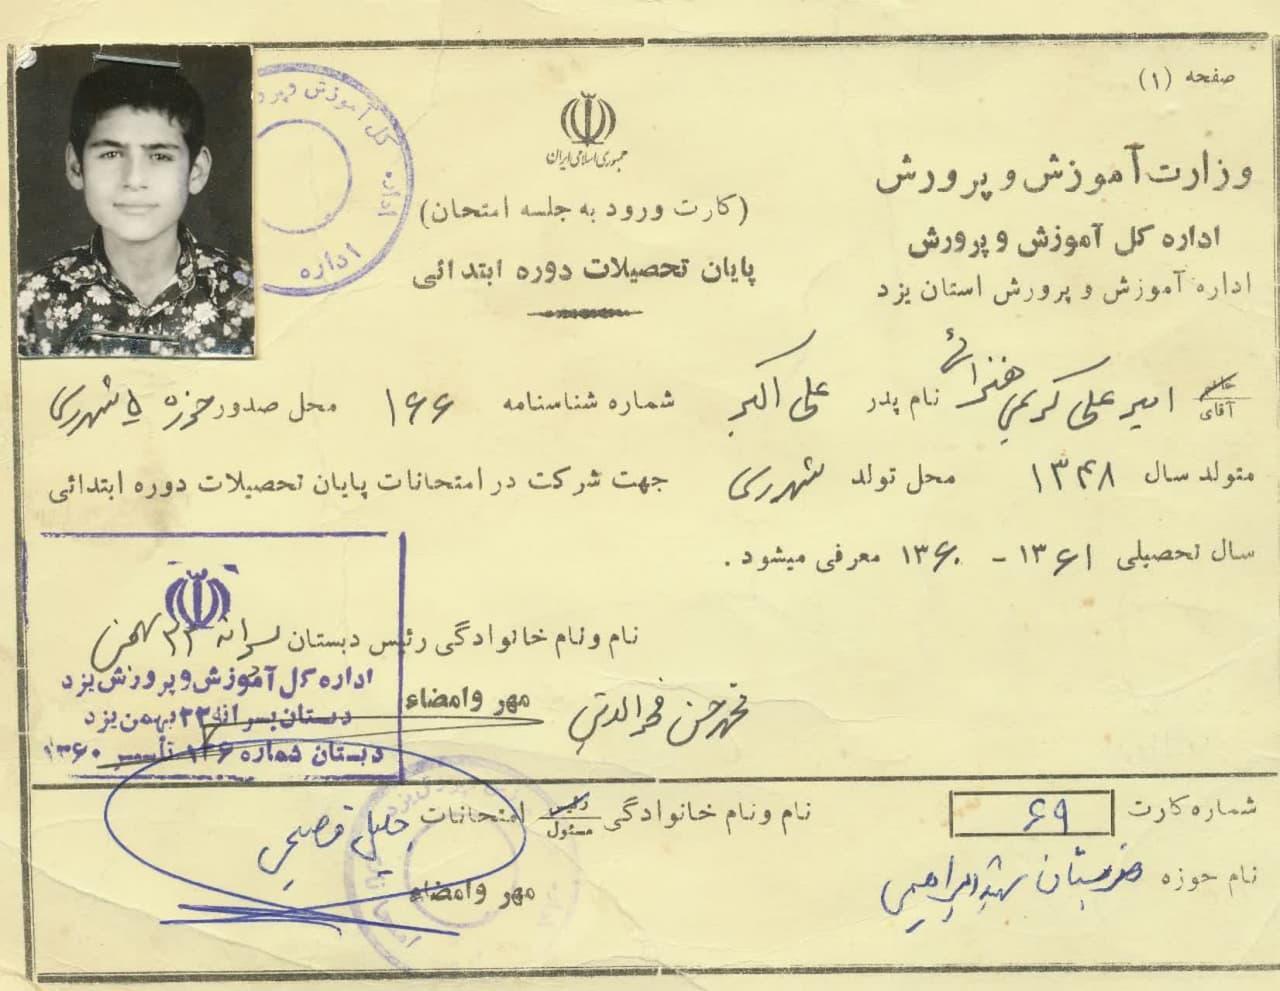 صفحه (۱)
جمهوری اسلامی ایران
وزارت آموزش و پرورش
(کارت ورود به جلسه امتحان)
اداره کل آموزش و پرورش
پایان تحصیلات دوره ابتدائی
اداره آموزش و پرورش استان یزد
کل آموزش و پرو
اداره
اداره
خانم
آقای امیر علی کریمی نام پدر علی اکبر شماره شناسنامه ۱۶۶ محل صدور حوزه ۵ شهرری
متولد سال ۱۳۴۸ محل تولد شهرری جهت شرکت در امتحانات پایان تحصیلات دوره ابتدائی
سال تحصیلی ۱۳۶۱ - ۱۳۶۰ معرفی میشود .
نام ونام خانوادگی رئیس دبستان پسرانه ۲۲ بهمن
مهر وامضاء
اداره کل آموزش و پرورش یزد
دبستان پسرانه ۲۲ بهمن یزد
دبستان شماره ۱۲۶ تأسیس ۱۳۶۰
شماره کارت ۶۹
نام ونام خانوادگی رئیس
مسئول امتحانات جلیل
نام حوزه هنرستان شهید ابراهیمی
مهر وامضاء